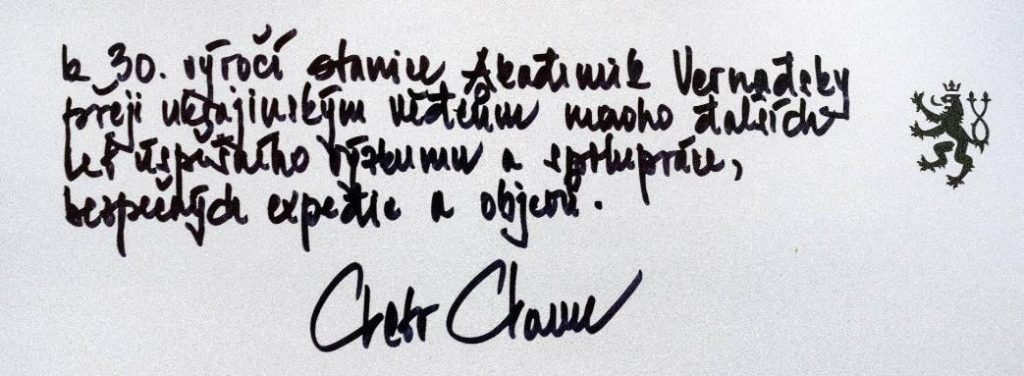 k 30. výročí stanice Akademik Vernadsky
přeji ukrajinským vědcům mnoho dalších
let úspěšného výzkumu a spolupráce,
bezpečných expedic a objevů.
Petr Pavel